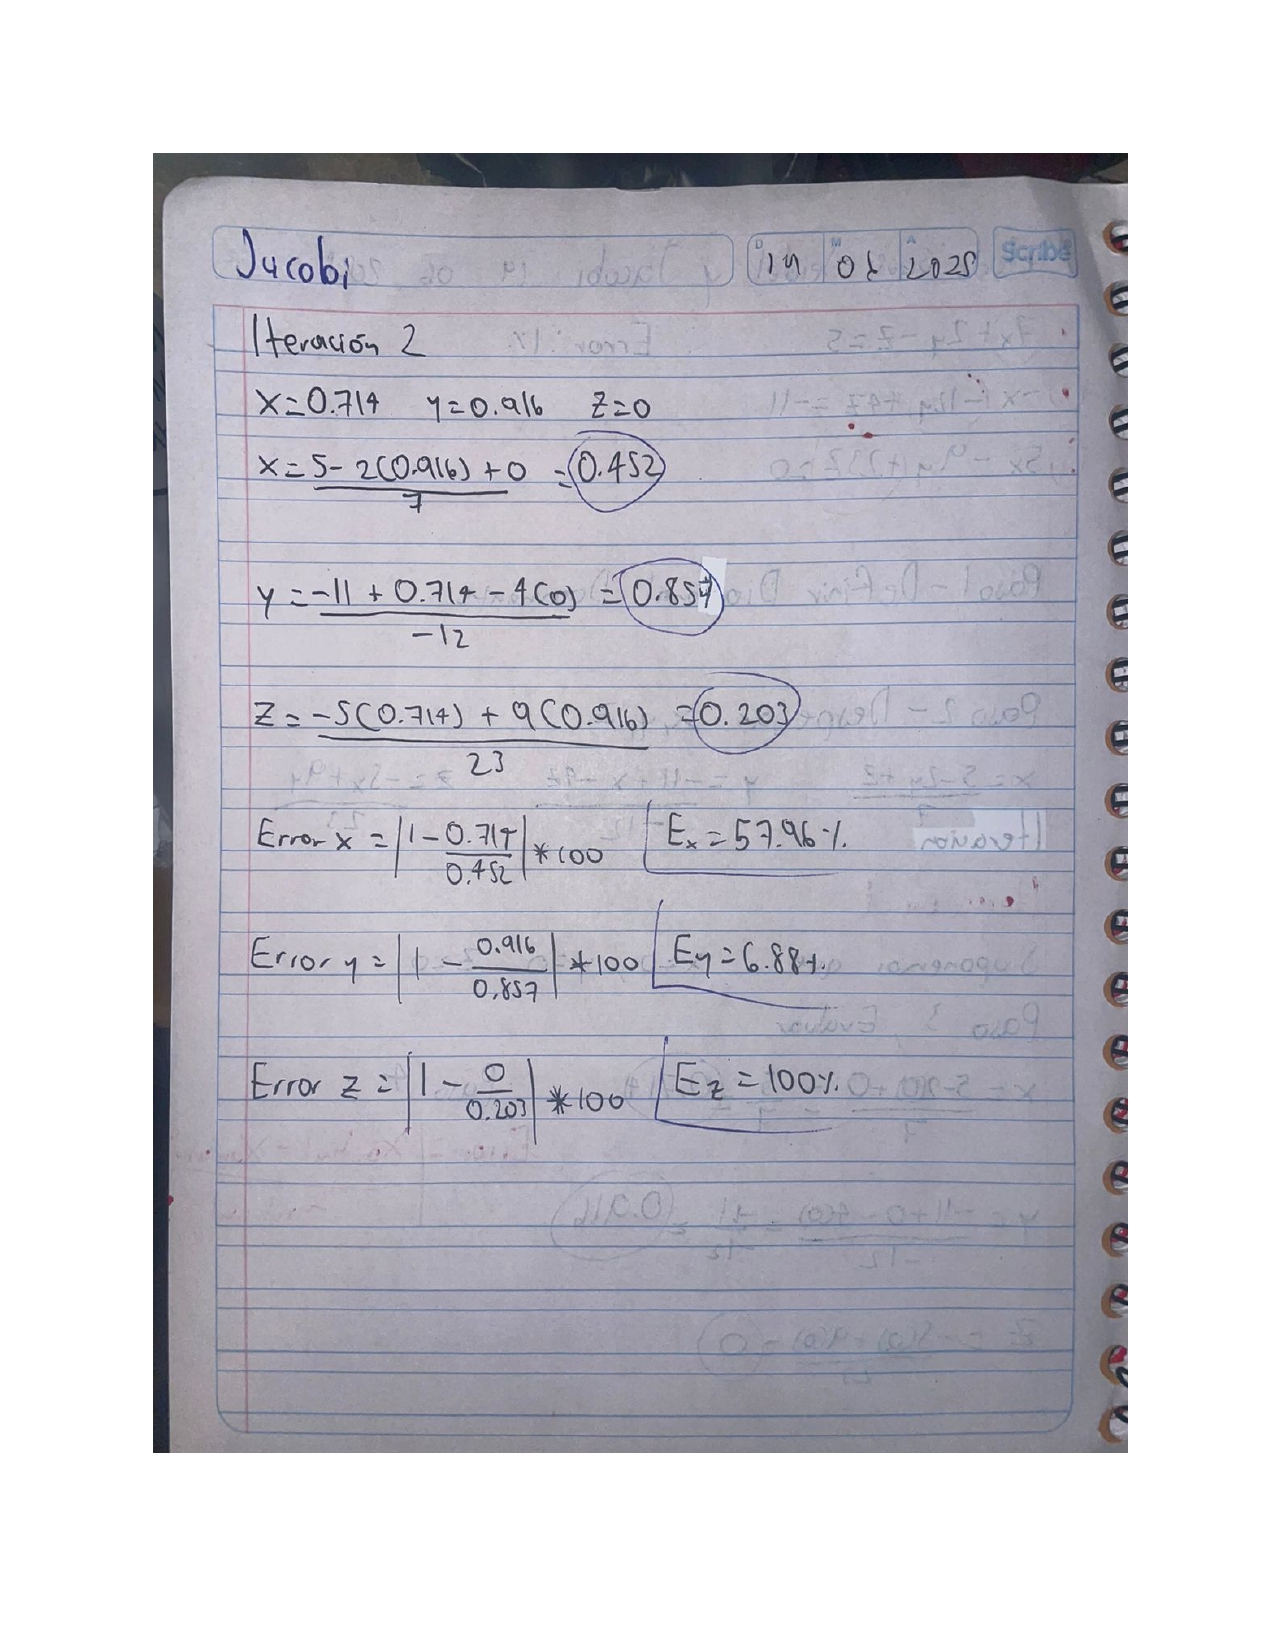 Jacobi D 14 M 06 A 2025 Scribe
Iteración 2
x=0.714 y=0.916 z=0
x = 5 - 2(0.916) + 0 = 0.452
7
y = -11 + 0.714 - 4(0) = 0.857
-12
z = -5(0.714) + 9(0.916) = 0.203
23
Error x = |1 - 0.714/0.452| * 100 Ex = 57.96%
Error y = |1 - 0.916/0.857| * 100 Ey = 6.88%
Error z = |1 - 0/0.203| * 100 Ez = 100%